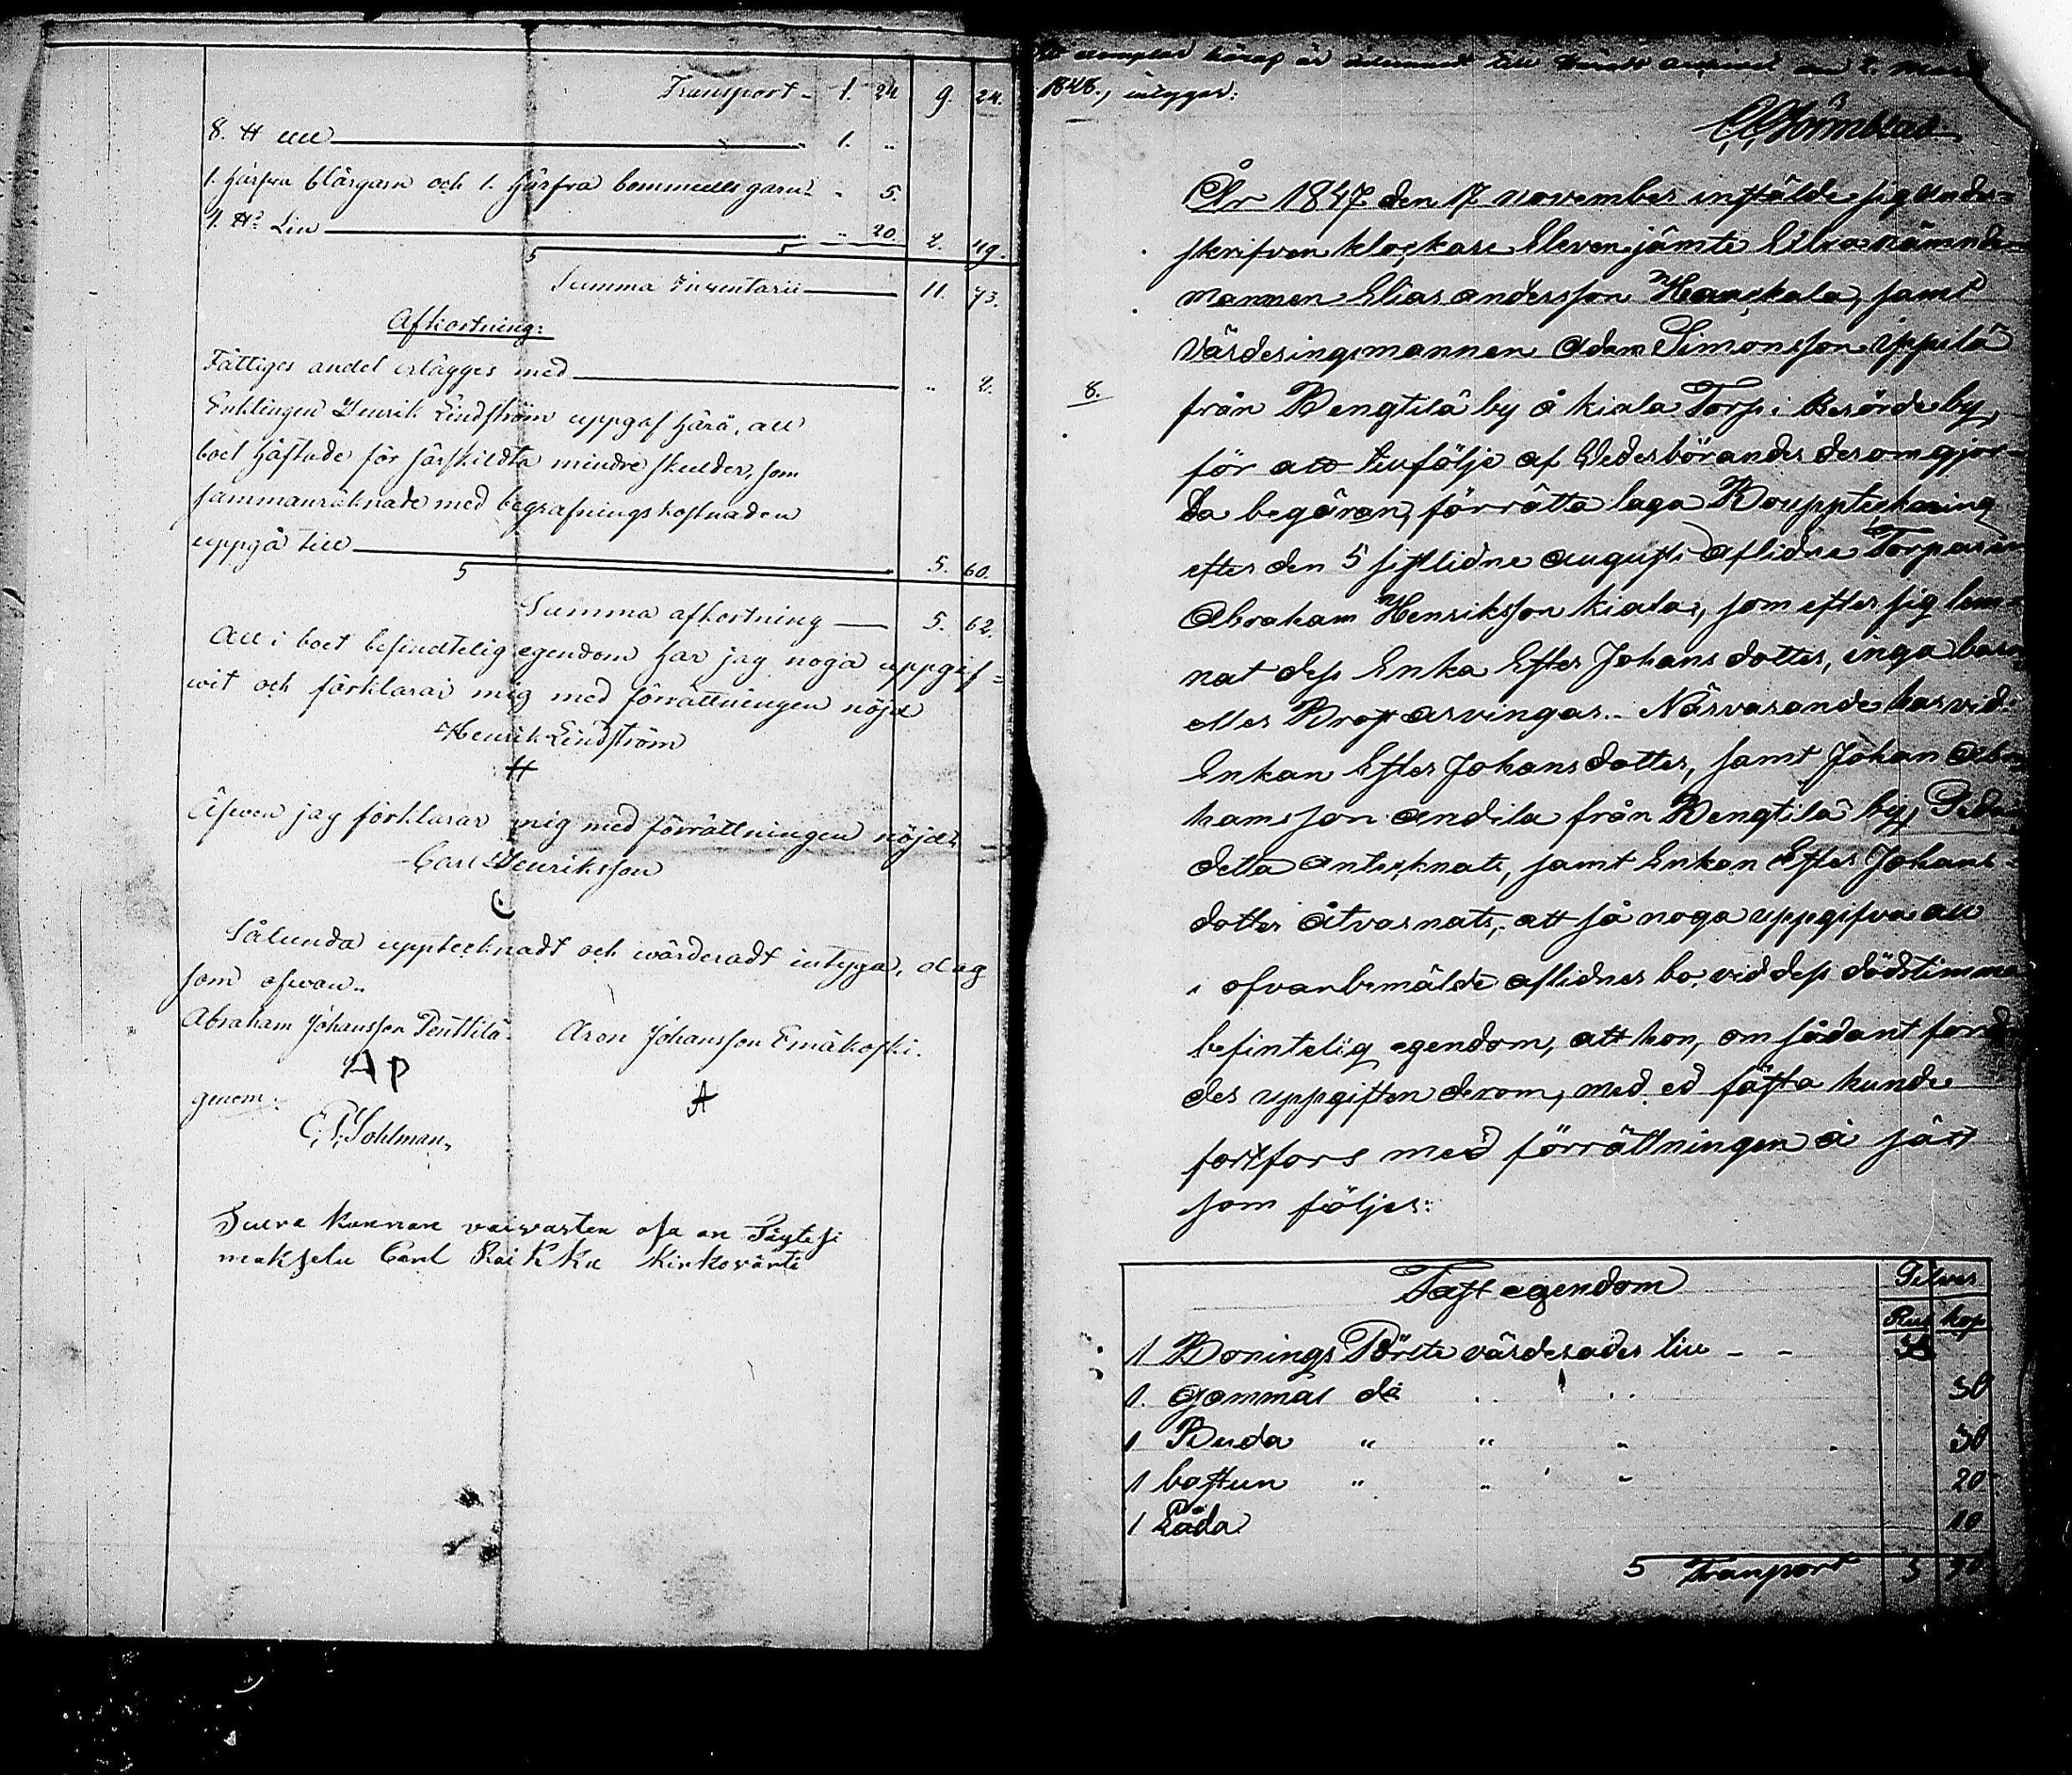 Transport 1. 24 9. 24.
8. ℔ ull 1. „
1. härfva blårgarn och 1. härfva bommullsgarn „ 5.
4. ℔ Lin „ 20. 2. 49.
Summa Inventarii 11. 73.
Afkortning:
Fattiges andel erlägges med „ 2.
Enklingen Henrik Lindström uppgaf härå, att
boet häftade för särskildta mindre skulder, som
sammanräknade med begrafningskostnaden
uppgå till 5. 60.
Summa afkortning 5. 62.
All i boet befindtelig egendom har jag noga uppgif=
wit och förklarar mig med förrättningen nöjd
Henrik Lindström
H
Äfwen jag förklarar mig med förrättningen nöjd
Carl Henriksson
C
Sålunda upptecknadt och wärderadt intyga, dag
som ofwan.
Abraham Johansson Penttilä. Aron Johansson Emäkoski.
AP A
genom:
C. P. Sohlman
Suvre kunnan vaivasten osa on Täytesi
maksetu Carl Raikku Kirkovärti
exemplar häraf är till den 2. Mars
1848., intygar:
År 1847 den 17 november instälde sig under=
skrifven klockare Eleven jämte Extra nämnde=
mannen Elias andersson Hanckala, samt
värderingsmannen Adam Simonsson Uppilä
8. från Bengtilä by å kiala Torp i by,
för att till följe af Vederbörandes derom gjor=
da begäran, förrätta laga Bouppteckning
efter den 5 sistlidne augusti aflidne Torparen
Abraham Henriksson kiala, som efter sig lem=
nat dess Enka Ester Johansdotter, inga barn
eller Bröst arvingar. Närvarande harvid
Enkan Ester Johansdotter, samt Johan Abra
hamsson andila från Bengtilä by, Sedan
detta antecknats, samt Enkan Ester Johans=
dotter åtvarnats, att så noga uppgifva all
i ofvanbemälde aflidnes bo, vid dess dödstimma
befintelig egendom, att hon, om sådant fordra
des uppgiften derom, med ed fästa kunde
fortfors med förrättningen å sätt
som följer:
Fast egendom Silver
Rub kop
1 Bonings Pörte värderades till
1. gammal då 30
1 Buda „ „ „ 30
1 bastun „ „ „ 20
1 Låda 10
5 Transport 5 90